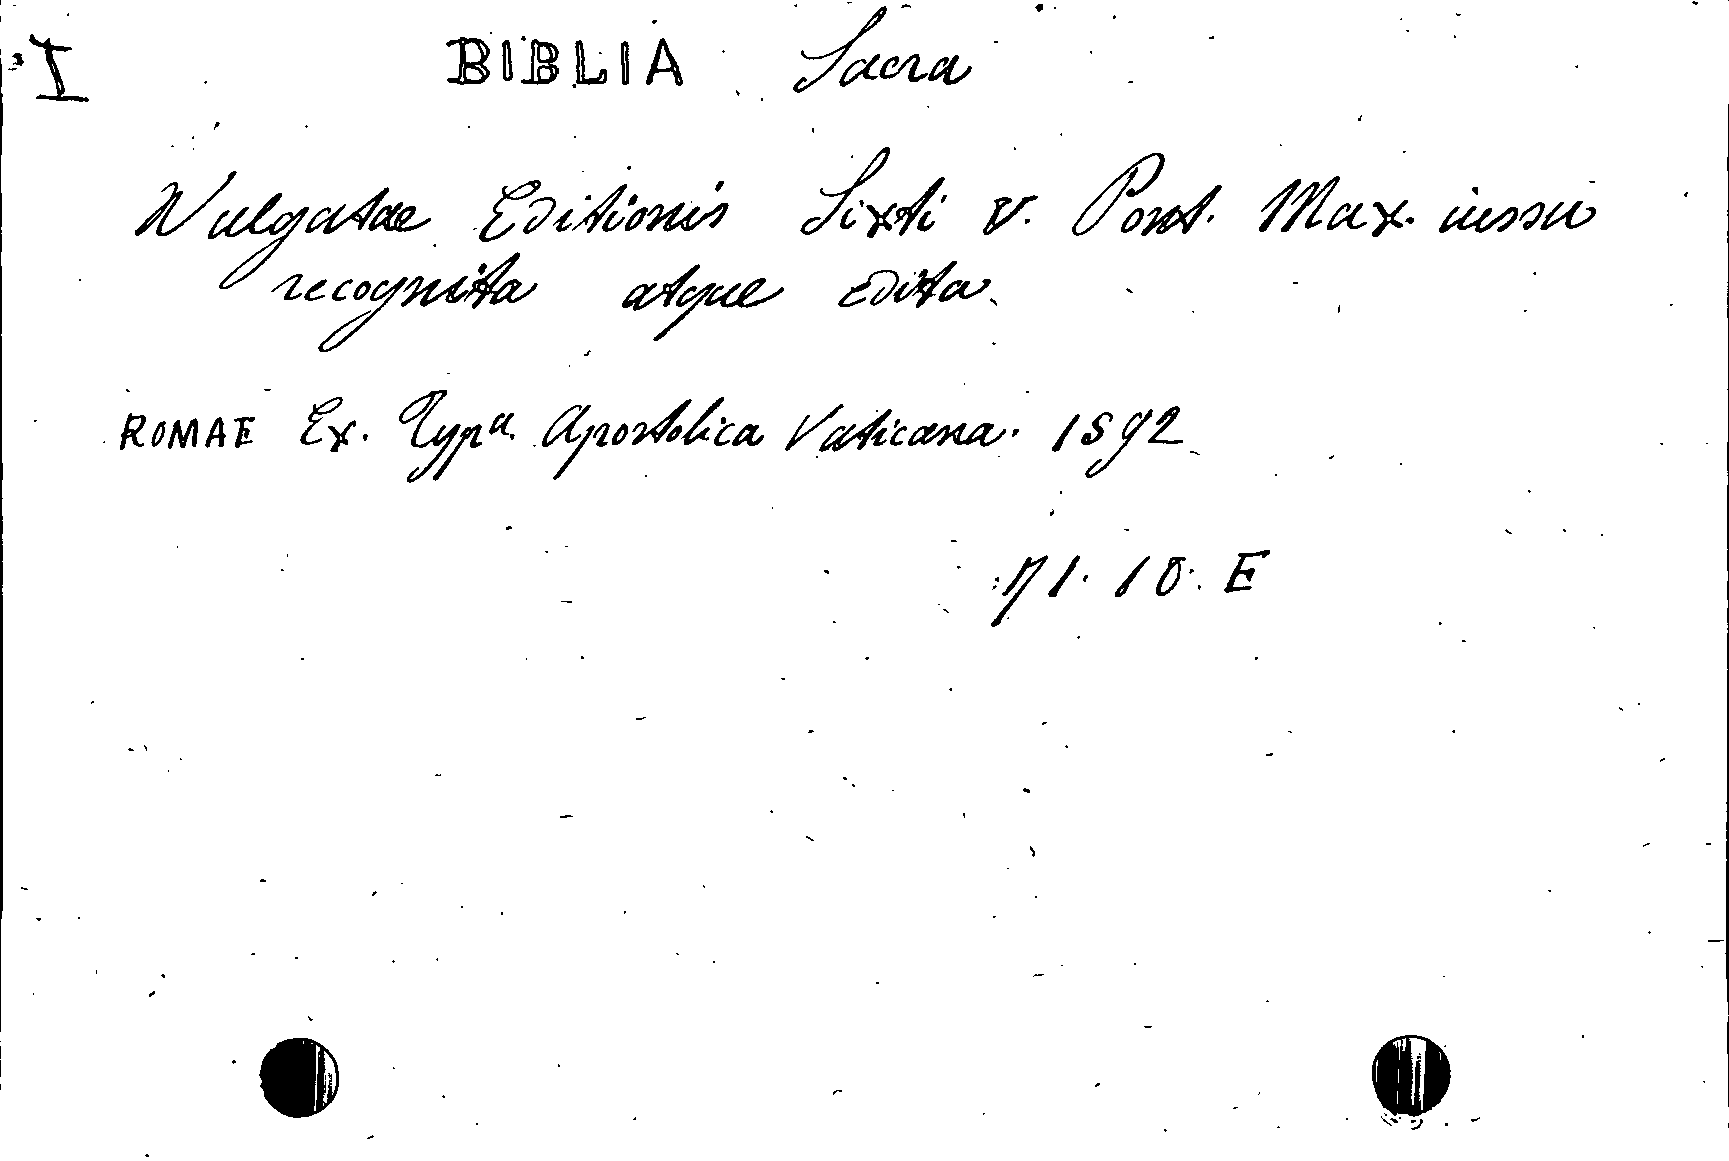 I BIBLIA Sacra
Vulgatae Editionis Sixti V. Pont. Max. iussu
recognita atque edita
ROMAE Ex. Typa. Apostolica Vaticana. 1592
71. 10. E